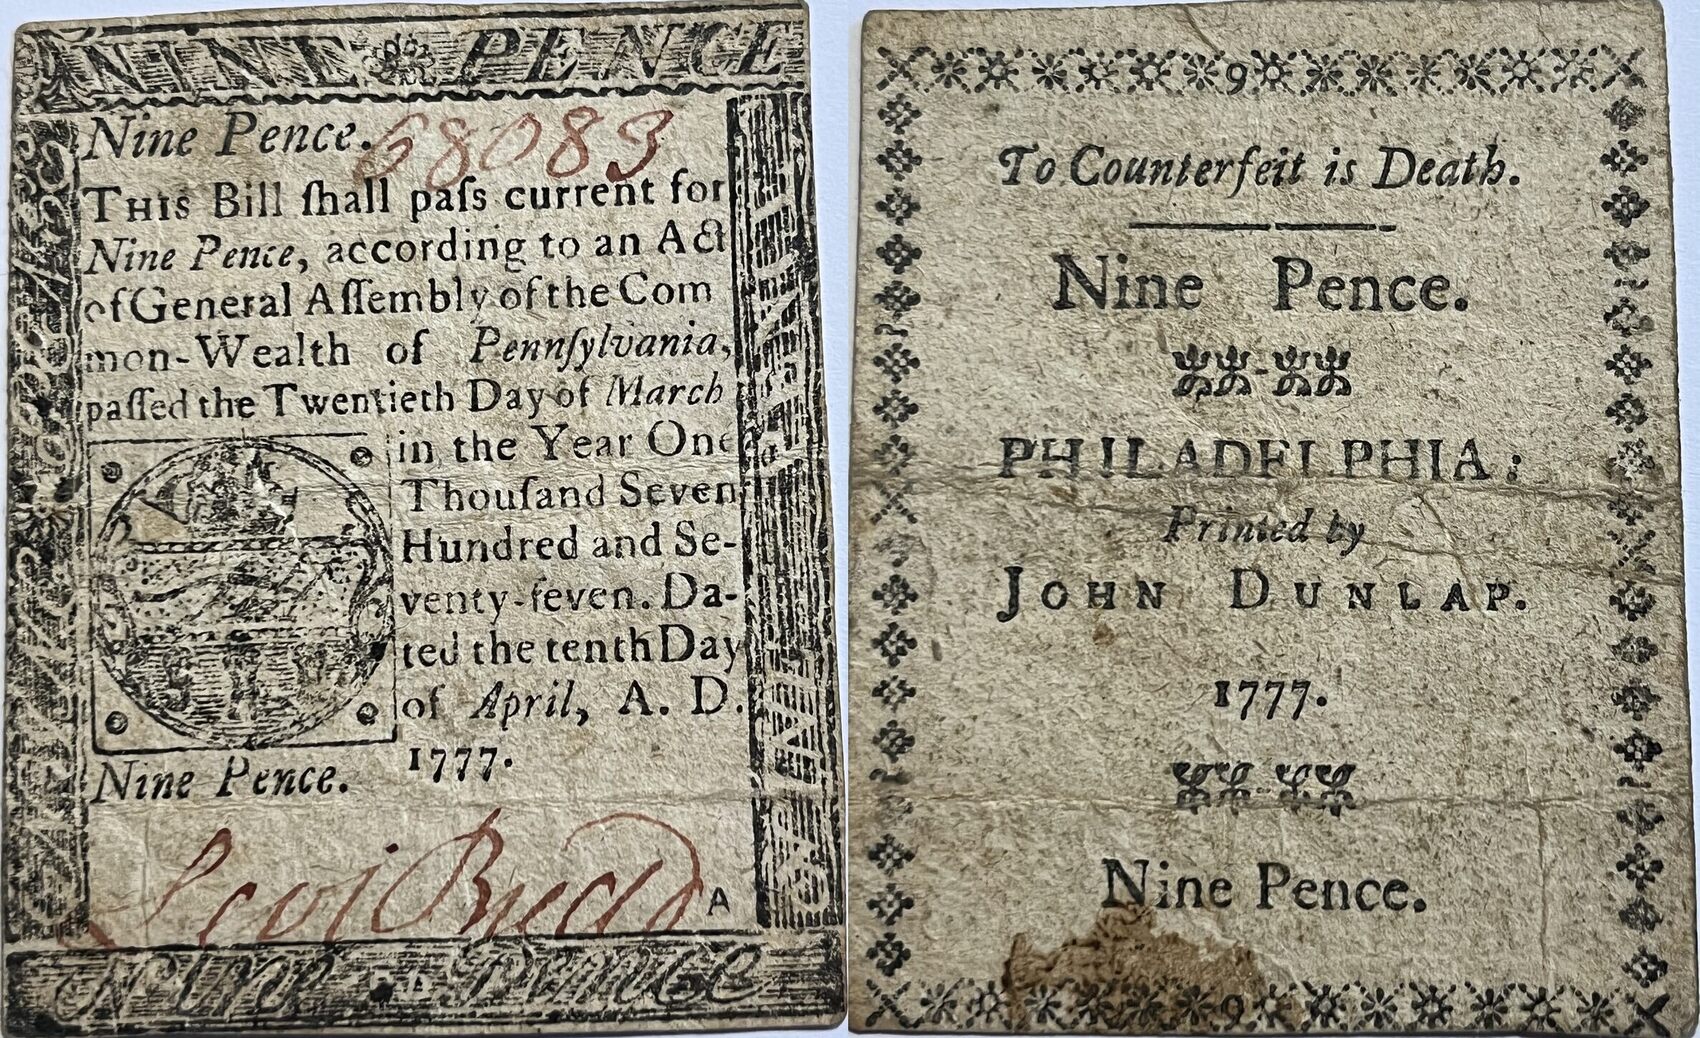 NINE PENCE
Nine Pence. 68083
THIS Bill ſhall paſs current for
Nine Pence, according to an Act
of General Aſſembly of the Com
mon-Wealth of Pennſylvania,
paſſed the Twentieth Day of March
in the Year One
Thouſand Seven
Hundred and Se-
venty-ſeven. Da-
ted the tenth Day
of April, A. D.
1777.
Nine Pence.
A
Nine Pence
9
To Counterfeit is Death.
Nine Pence.
PHILADELPHIA:
Printed by
JOHN DUNLAP.
1777.
Nine Pence.
9